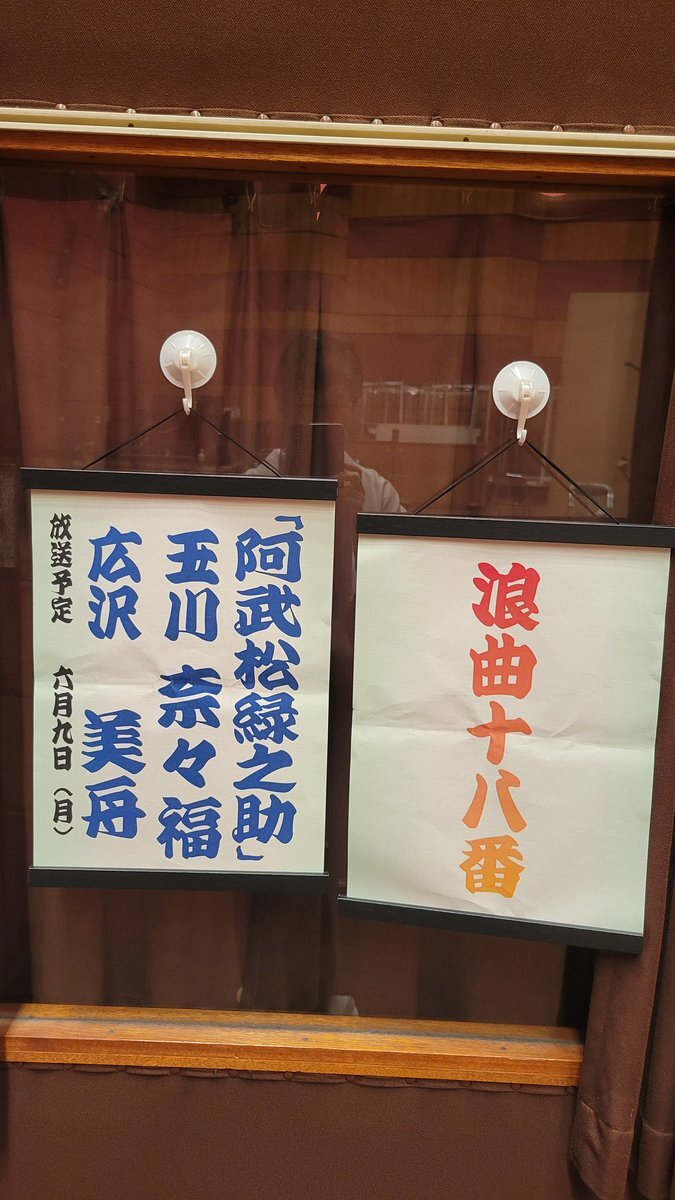 浪曲十八番
「阿武松緑之助」
玉川 奈々福
広沢 美舟
放送予定 六月九日(月)